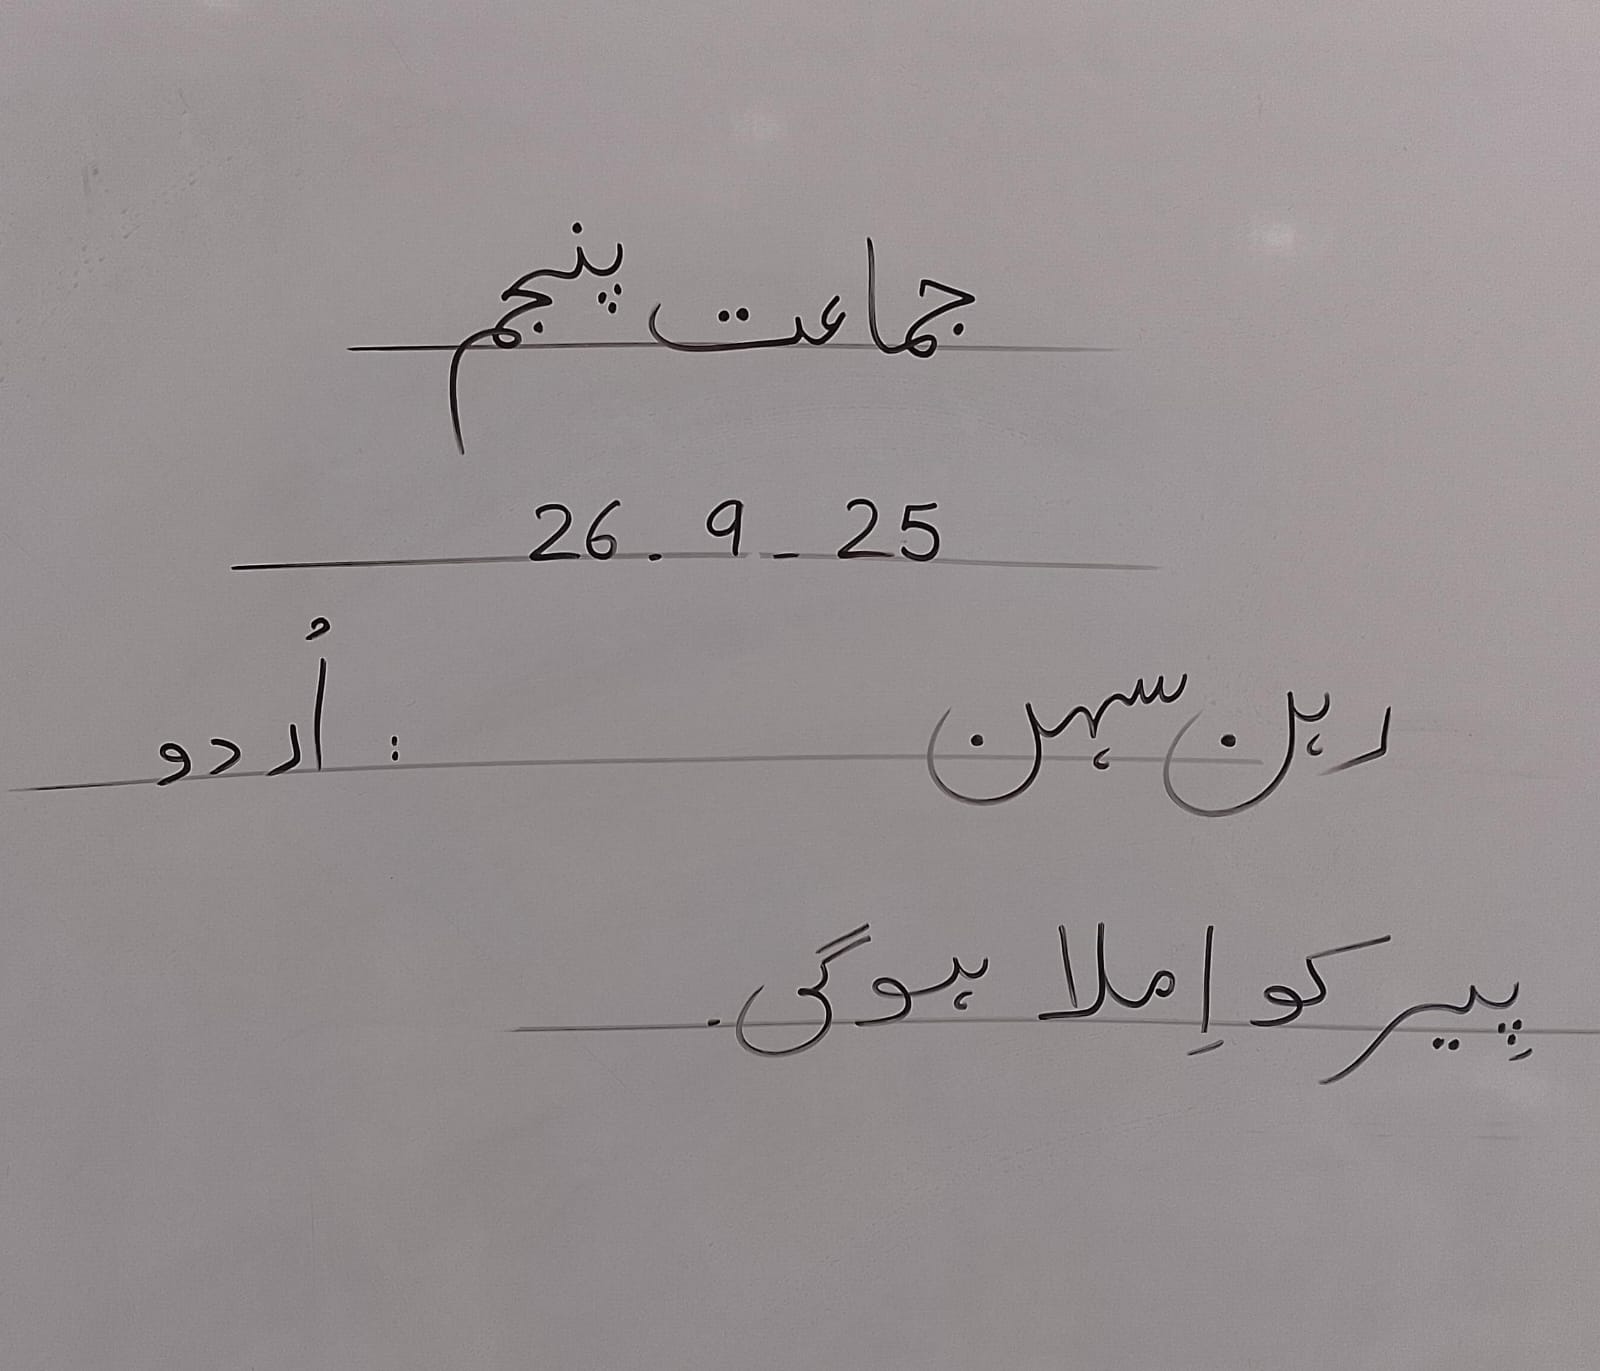 جماعت پنجم
26.9-25
رہن سہن : اُردو
پِیر کو اِملا ہوگی.